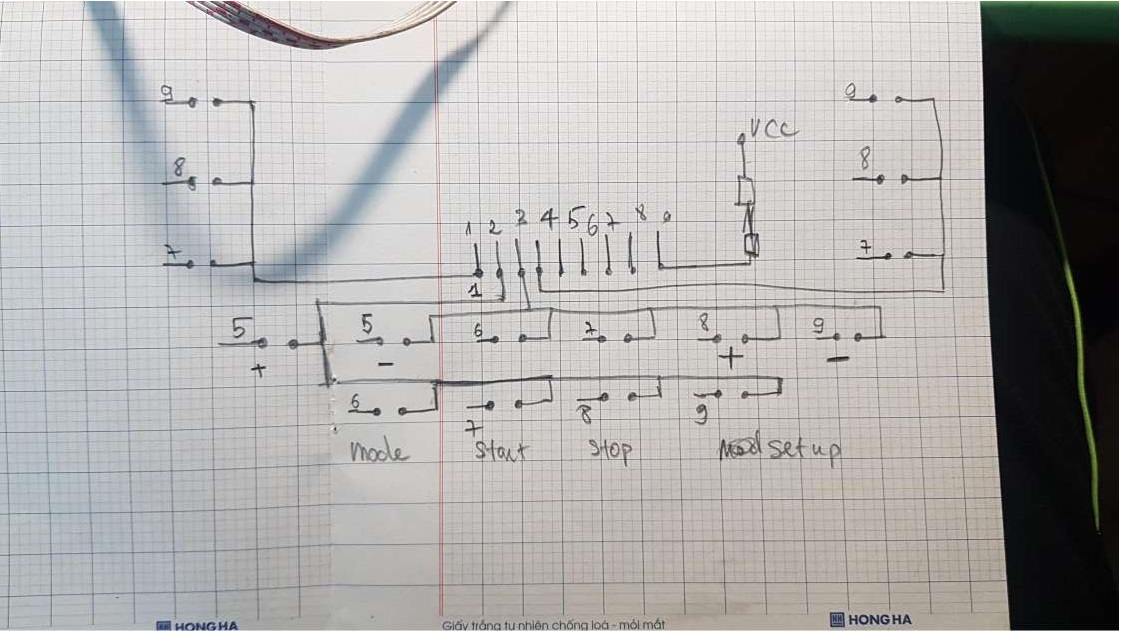 9
9
VCC
8
8
1 2 3 4 5 6 7 8 9
7
7
1
5 5 6 7 8 9
+ - + -
6 7 8 9
Mode Start Stop setup
HONG HA
Giấy trắng tự nhiên chống loá - mỏi mắt
HONG HA